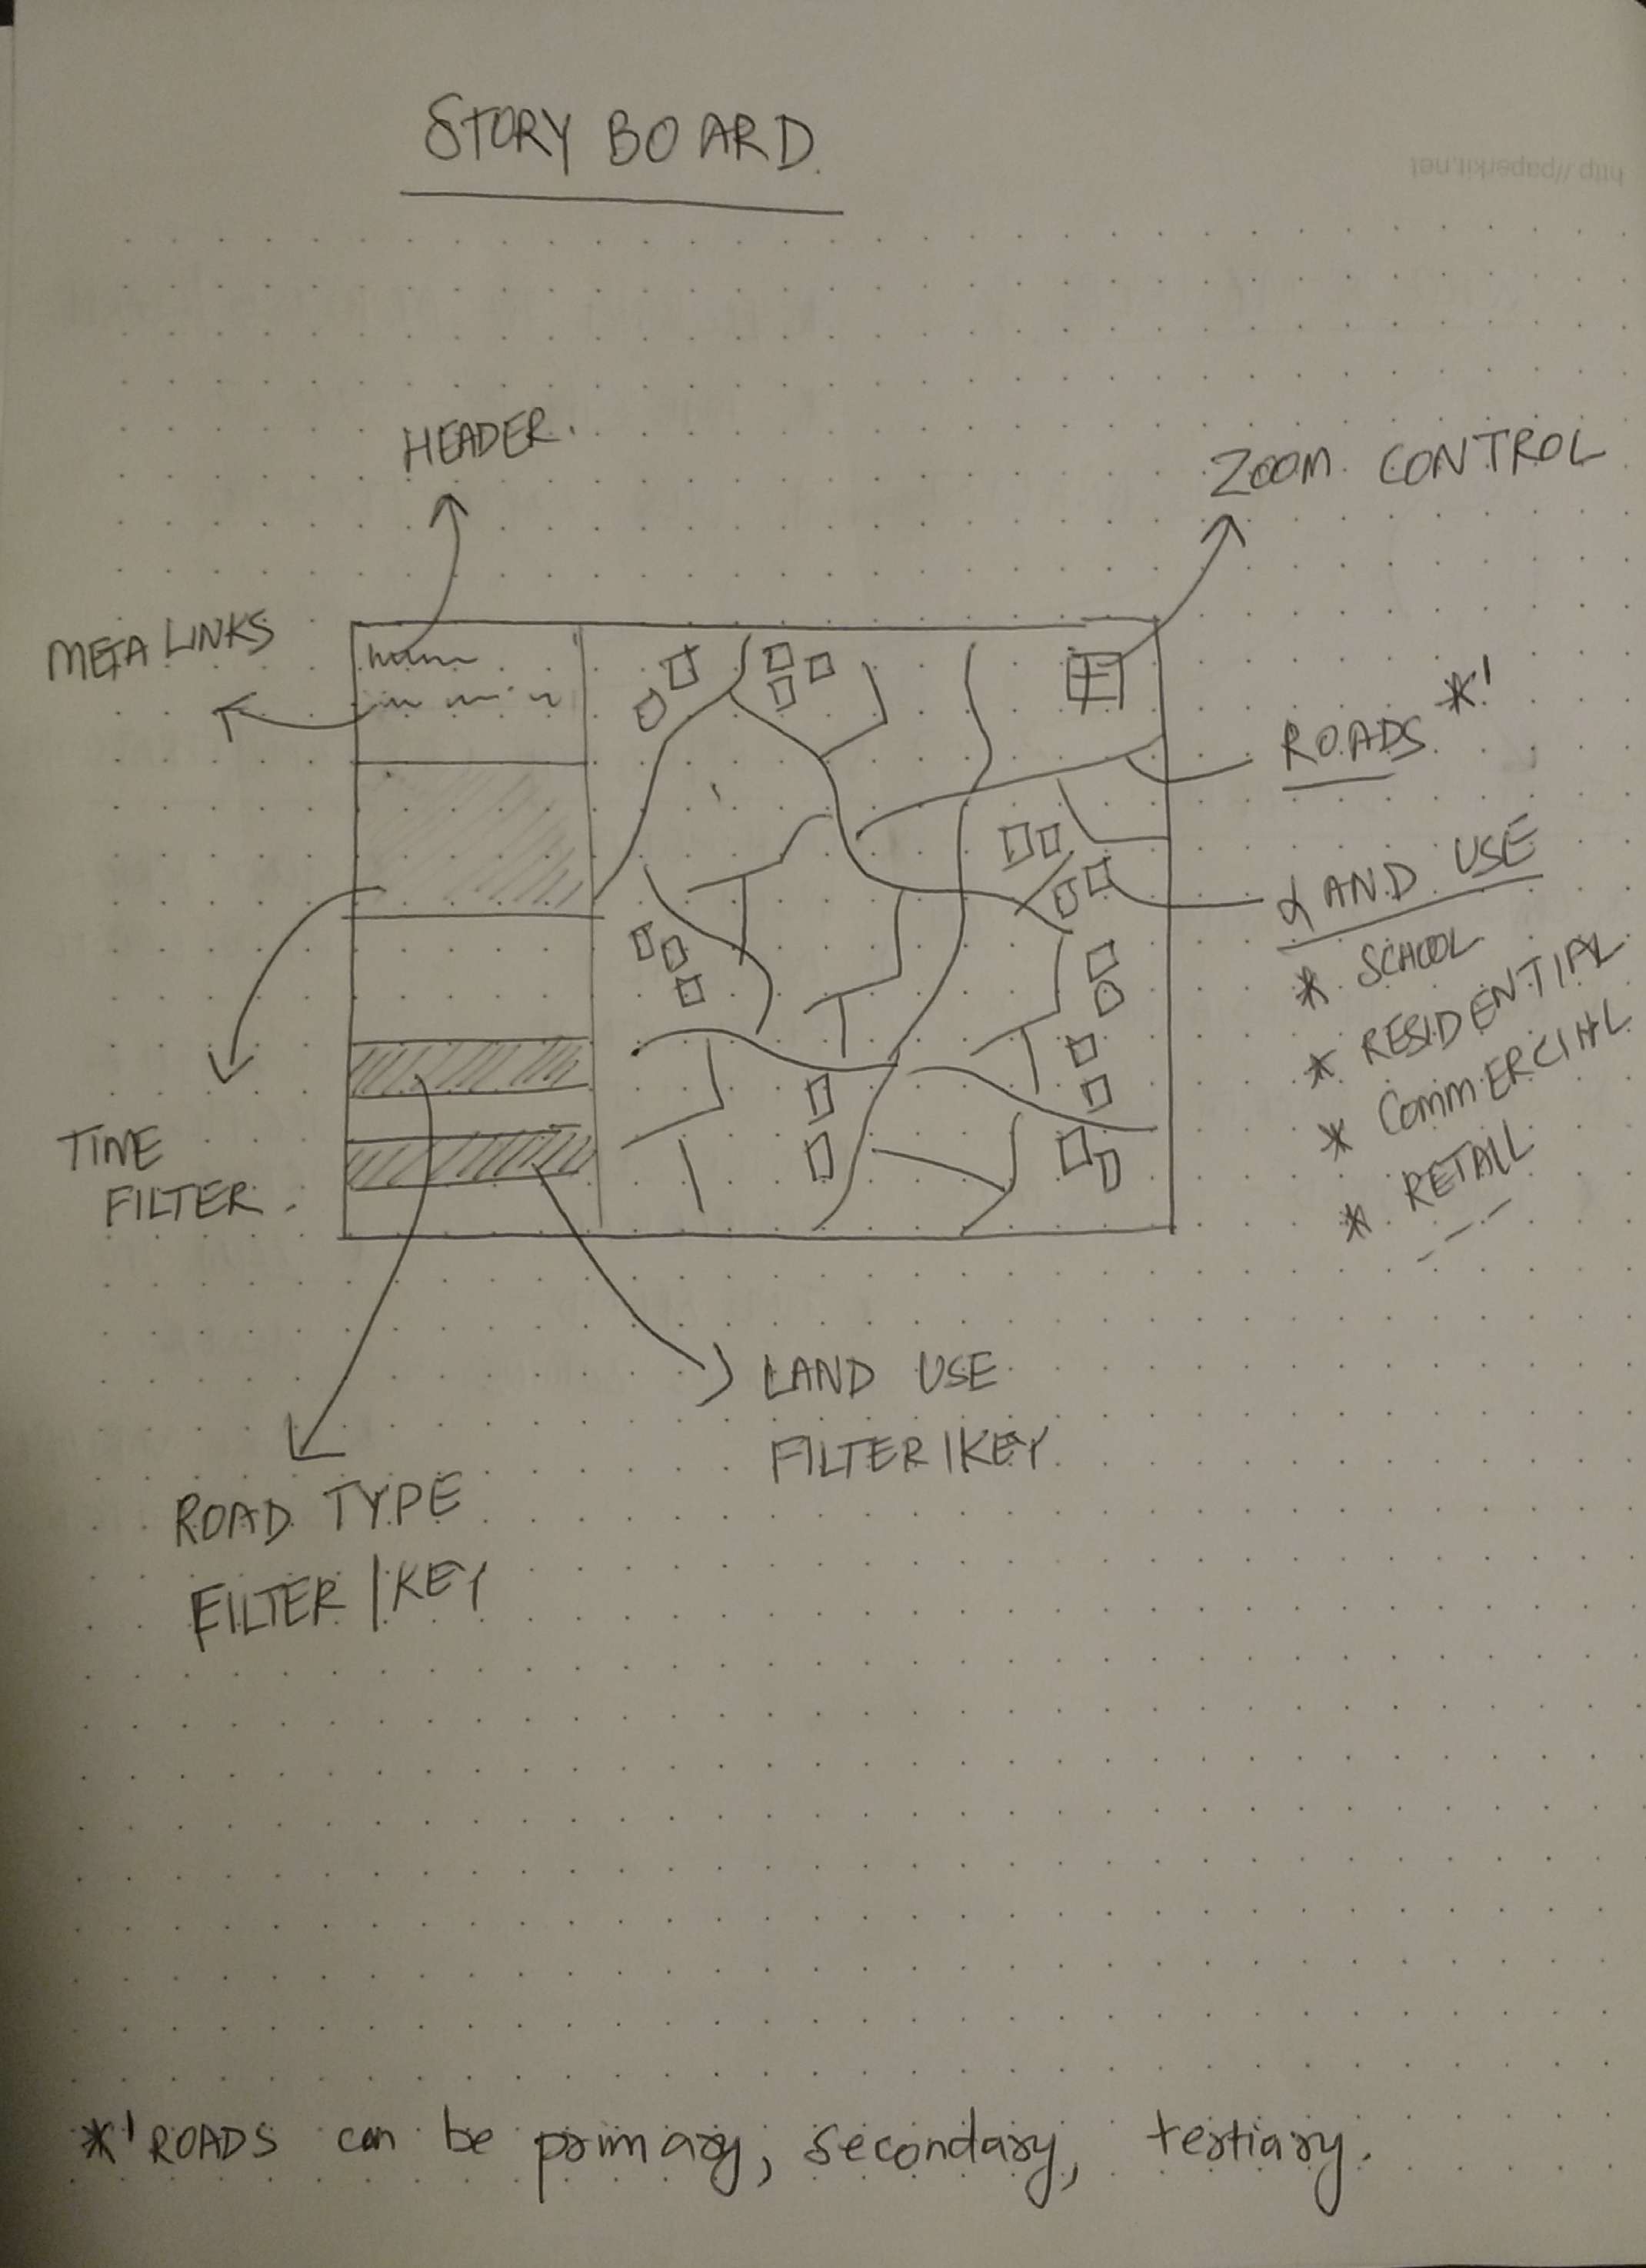 STORY BOARD.
http://paperkit.net
HEADER.
ZOOM CONTROL
META LINKS
ROADS *'
LAND USE
* SCHOOL
* RESIDENTIAL
* COMMERCIAL
* RETAIL
TIME
FILTER.
LAND USE
FILTER/KEY
ROAD TYPE
FILTER/KEY
*' ROADS can be primary, secondary, tertiary.